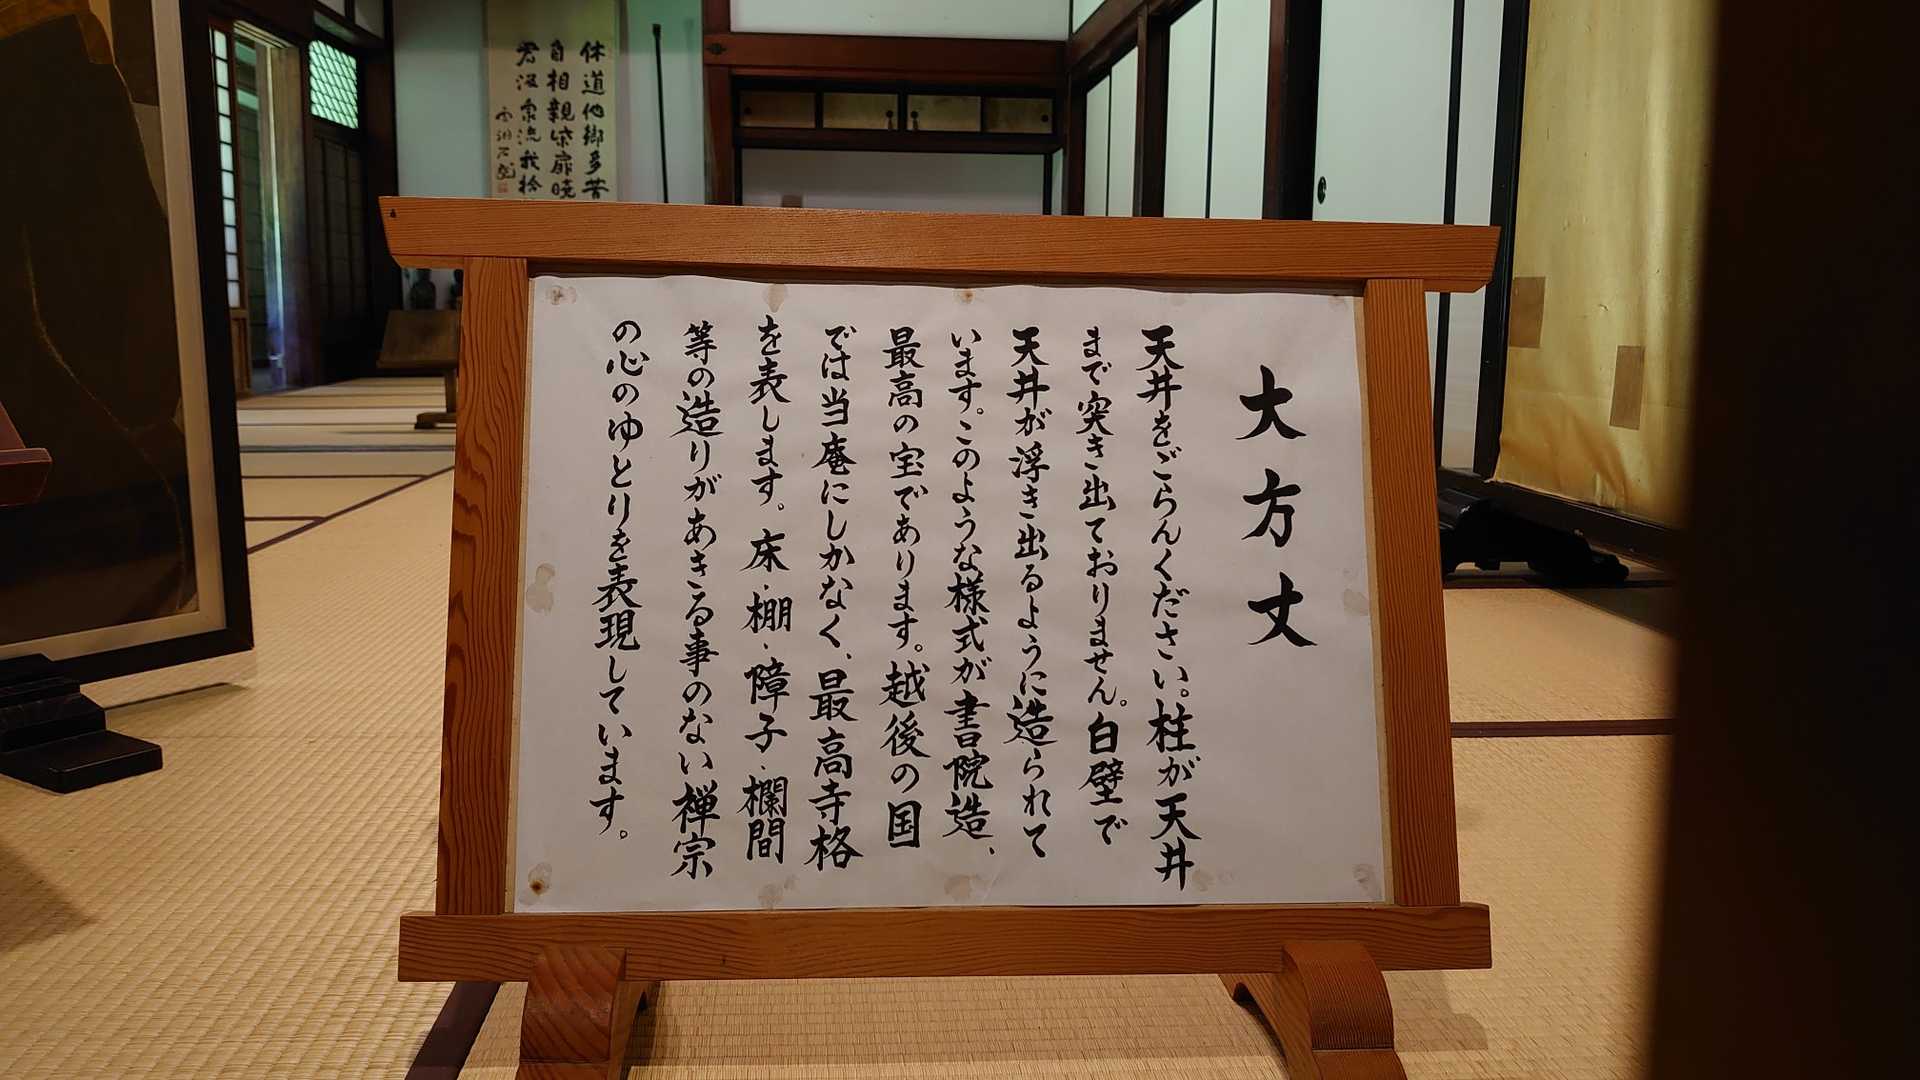 大方丈
天井をごらんください。柱が天井
まで突き出ておりません。白壁で
天井が浮き出るように造られて
います。このような様式が書院造、
最高の宝であります。越後の国
では当庵にしかなく、最高寺格
を表します。床・棚・障子・欄間
等の造りがあきる事のない禅宗
の心のゆとりを表現しています。
休道他郷多苦
自相親柴扉暁
君汲泉流我拾